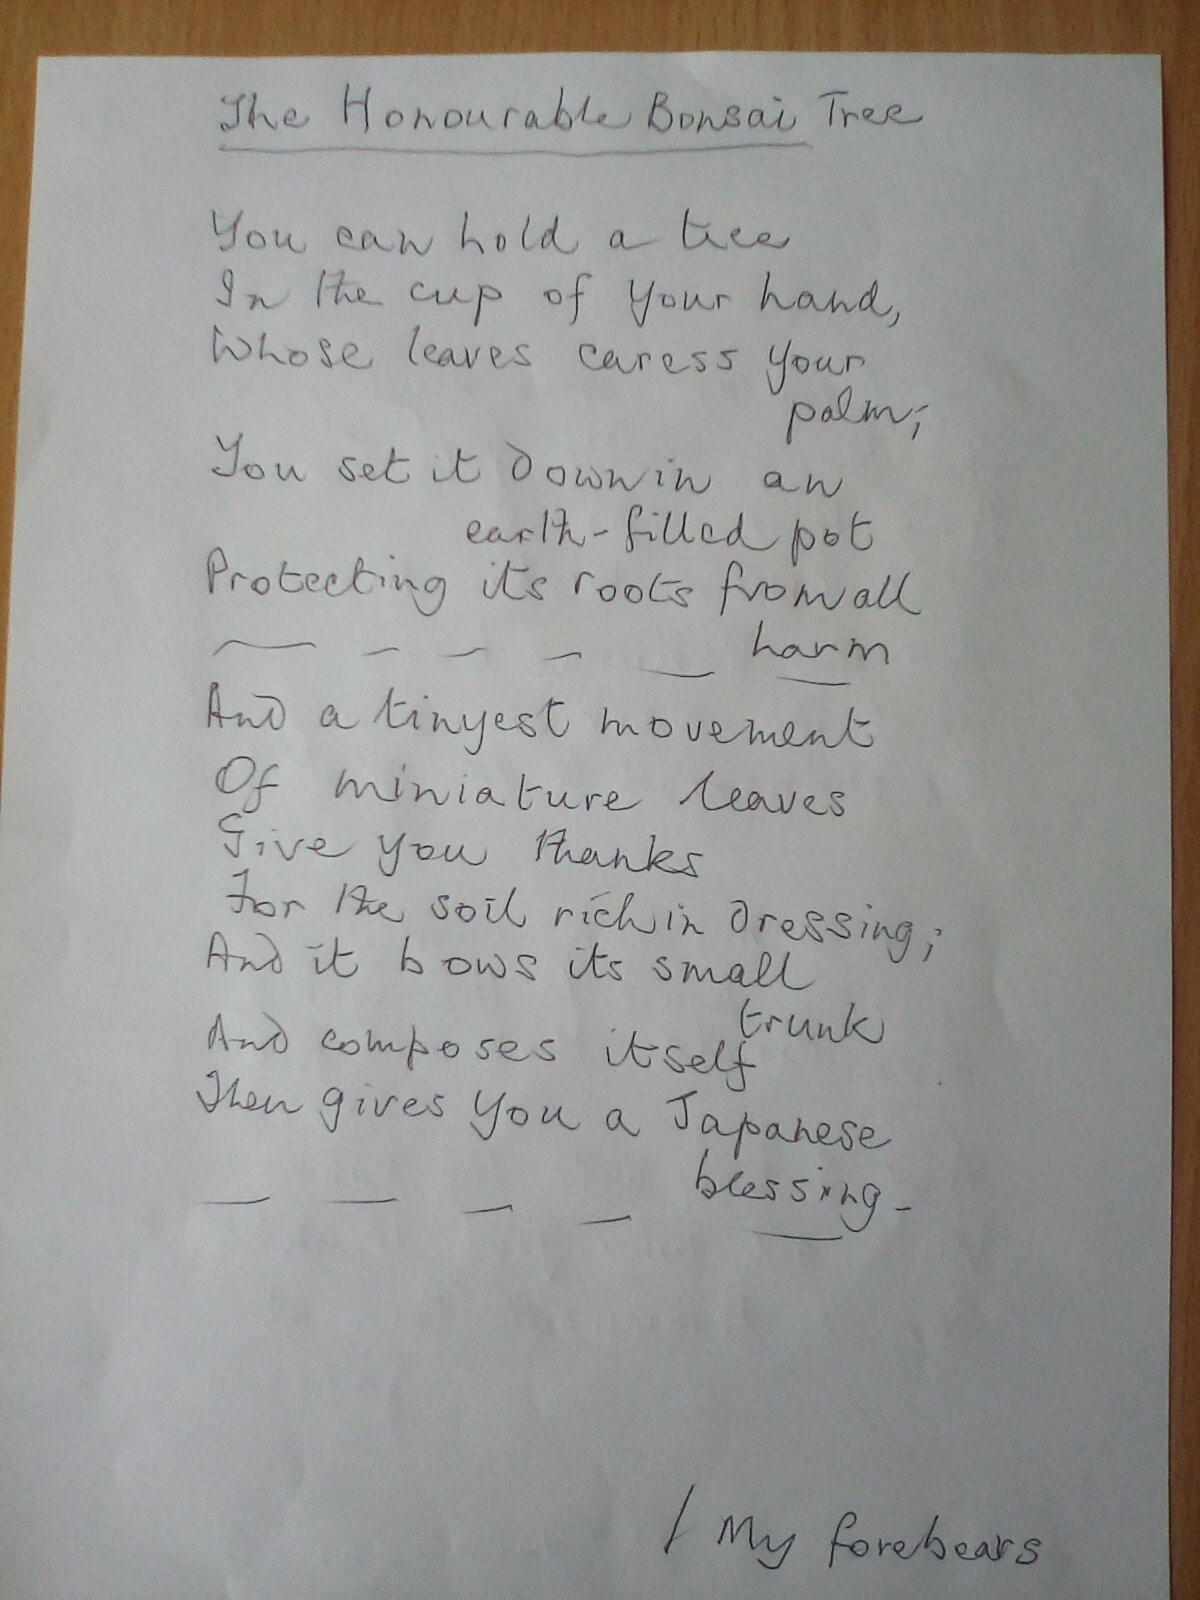 The Honourable Bonsai Tree
You can hold a tree
In the cup of your hand,
Whose leaves caress your
palm;
You set it down in an
earth-filled pot
Protecting its roots from all
harm
And a tinyest movement
Of miniature leaves
Give you thanks
For the soil rich in dressing;
And it bows its small
trunk
And composes itself
Then gives you a Japanese
blessing-
/ My forebears